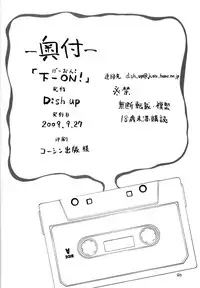 ―奥付―
げーおん!
「下―ON!」
発行
D:sh up
発行日
2009.9.27
印刷
コーシン出版 様
連絡先
必禁
無断転載・複製
18歳未満購読
A